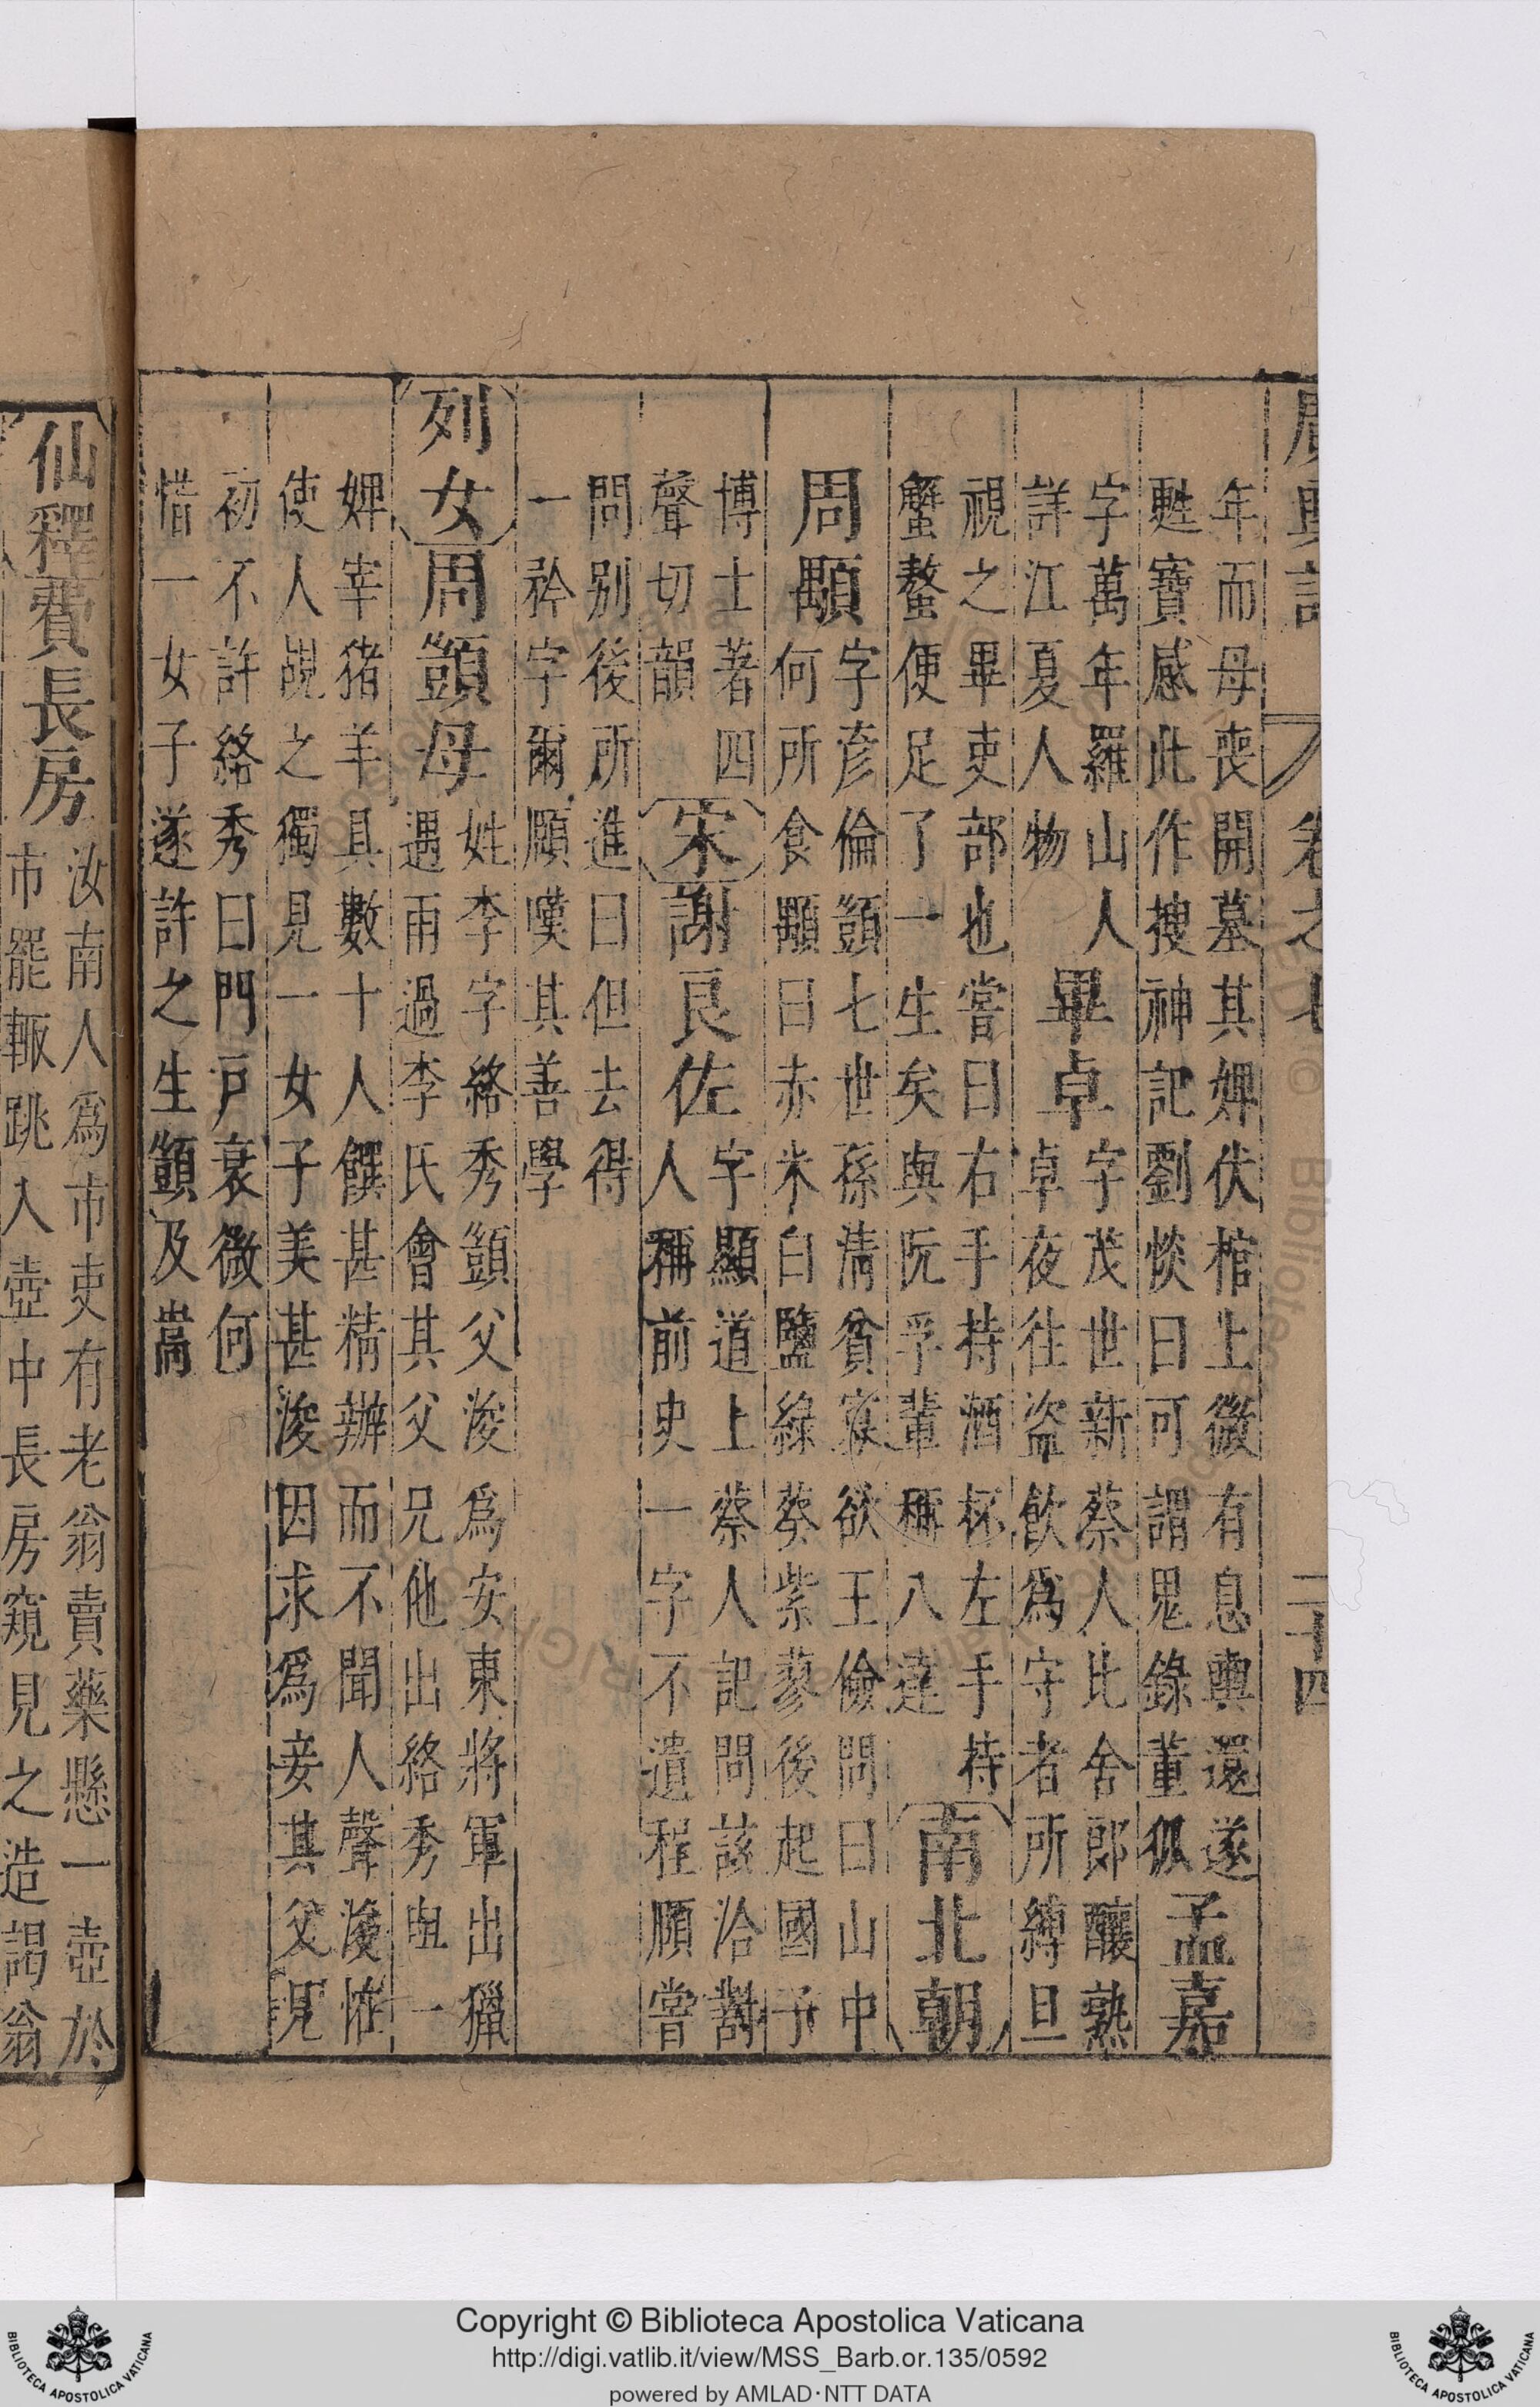 卷之七
二十四
年而母喪開墓其婢伏棺上微有息輿還遂
甦寶感此作搜神記劉惔曰可謂鬼錄董狐
孟嘉
字萬年羅山人
詳江夏人物
畢卓
字茂世新蔡人比舍郎釀熟
卓夜往盜飲為守者所縛旦
視之畢吏部也嘗曰右手持酒杯左手持
蟹螯便足了一生矣與阮孚輩稱八達
南北朝
周顒
字彥倫顗七世孫清貧寡欲王儉問曰山中
何所食顒曰赤米白鹽綠葵紫蓼後起國子
博士著四
聲切韻
宋
謝良佐
字顯道上蔡人記問該洽對
人稱前史一字不遺程頤嘗
問別後所進曰但去得
一矜字爾頤嘆其善學
列女
周顗母
姓李字絡秀顗父浚為安東將軍出獵
遇雨過李氏會其父兄他出絡秀與一
婢宰猪羊具數十人饌甚精辦而不聞人聲浚怪
使人覘之獨見一女子美甚浚因求為妾其父兄
初不許絡秀曰門戶衰微何
惜一女子遂許之生顗及嵩
仙釋
費長房
汝南人為市吏有老翁賣藥懸一壺於
市罷輒跳入壺中長房窺見之造謁翁
Copyright © Biblioteca Apostolica Vaticana
http://digi.vatlib.it/view/MSS_Barb.or.135/0592
powered by AMLAD·NTT DATA
BIBLIOTECA APOSTOLICA VATICANA
BIBLIOTECA APOSTOLICA VATICANA